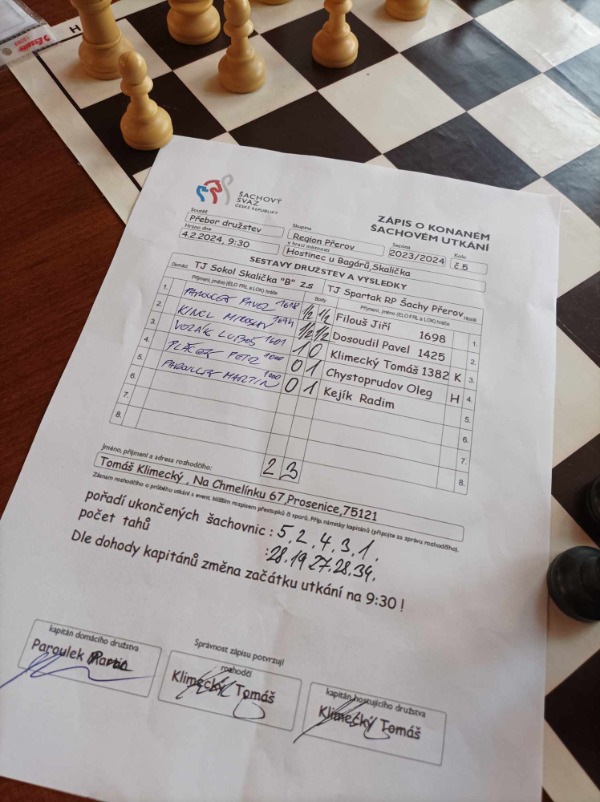 ŠACHOVÝ
SVAZ
ČESKÉ REPUBLIKY
ZÁPIS O KONANEM
ŠACHOVEM UTKÁNÍ
Soutěž
Přebor družstev
Skupina
Region Přerov
Sezóna
2023/2024
Kolo
č.5
Hráno dne
4.2.2024, 9:30
V hrací místnosti
Hostinec u Bagárů,Skalička
SESTAVY DRUŽSTEV A VÝSLEDKY
Domácí TJ Sokol Skalička "B" ZS TJ Spartak RP Šachy Přerov Hosté
Příjmení, jméno (ELO FRL a LOK) hráče Body Příjmení, jméno (ELO FRL a LOK) hráče
1. PAROULEK PAVEL 1/2 1/2 Filouš Jiří 1698 1.
2. KINCL MIROSLAV 1/2 1/2 Dosoudil Pavel 1425 2.
3. VOZNÁK LUBOŠ 1 0 Klimecký Tomáš 1382 K 3.
4. PETR 0 1 Chystoprudov Oleg H 4.
5. PAROULEK MARTIN 0 1 Kejík Radim 5.
6. 6.
7. 7.
8. 8.
2 3
Jméno, příjmení a adresa rozhodčího:
Tomáš Klimecký , Na Chmelínku 67,Prosenice,75121
Záznam rozhodčího o průběhu utkání s event. bližším rozpisem přestupků či sporů. Příp. námitky kapitánů (připojte za správu rozhodčího).
pořadí ukončených šachovnic : 5, 2, 4, 3, 1.
počet tahů :28.19 27.28.34.
Dle dohody kapitánů změna začátku utkání na 9:30 !
Správnost zápisu potvrzují
kapitán domácího družstva
Paroulek Martin
rozhodčí
Klimecký Tomáš
kapitán hostujícího družstva
Klimecký Tomáš